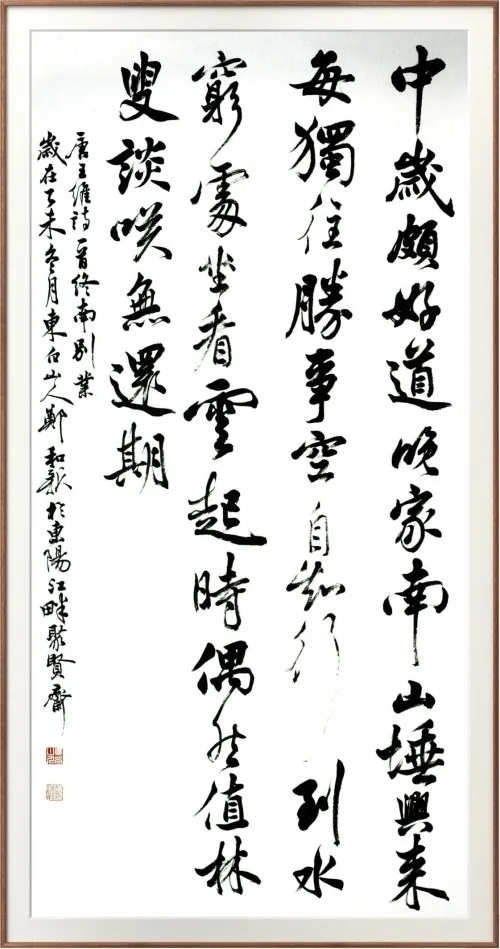 中歲頗好道晚家南山埵興來
每獨往勝事空自知行到水
窮處坐看雲起時偶然值林
叟談咲無還期
唐王維詩一首終南別業
歲在乙未冬月東白山人鄭和新於東陽江畔聚賢齋